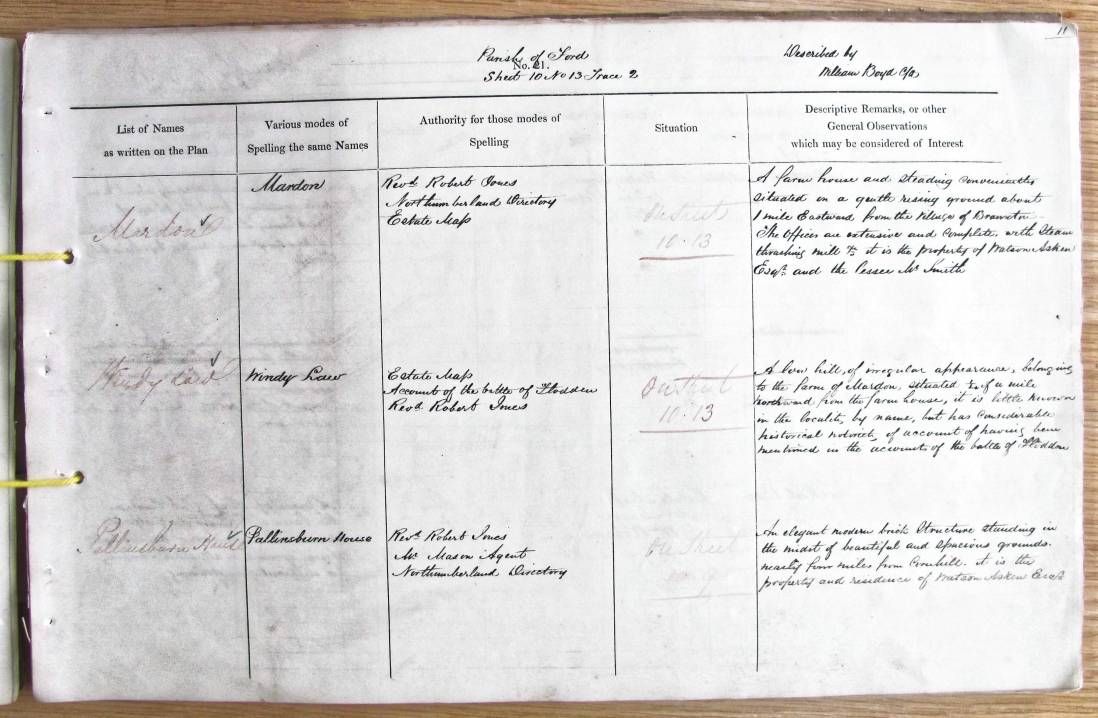 11
Parish of Ford
No. 21.
Sheet 10 No 13 Trace 2
Described by
William Boyd C/a
List of Names
as written on the Plan
Various modes of
Spelling the same Names
Authority for those modes of
Spelling
Situation
Descriptive Remarks, or other
General Observations
which may be considered of Interest
Mardon
Mardon
Revd. Robert Jones
Northumberland Directory
Estate Map
On Sheet
10.13
A farm house and steading conveniently
situated on a gentle rising ground about
1 mile Eastward from the village of Branxton
The Offices are extensive and complete, with Steam
thrashing mill &c it is the property of Watson Askew
Esqr. and the lessee Mr Smith
Windy Law
Windy Law
Estate Map
Account of the battle of Flodden
Revd. Robert Jones
On Sheet
10.13
A low hill, of irregular appearance, belonging
to the farm of Mardon, situated of a mile
northward from the farm house, it is little known
in the locality by name, but has considerable
historical notoriety of account of having been
mentioned in the accounts of the battle of Flodden
Pallinsburn House
Pallinsburn House
Revd. Robert Jones
Mr. Mason Agent
Northumberland Directory
On Sheet
An elegant modern brick Structure standing in
the midst of beautiful and spacious grounds.
nearly four miles from Cornhill. it is the
property and residence of Watson Askew Esqr